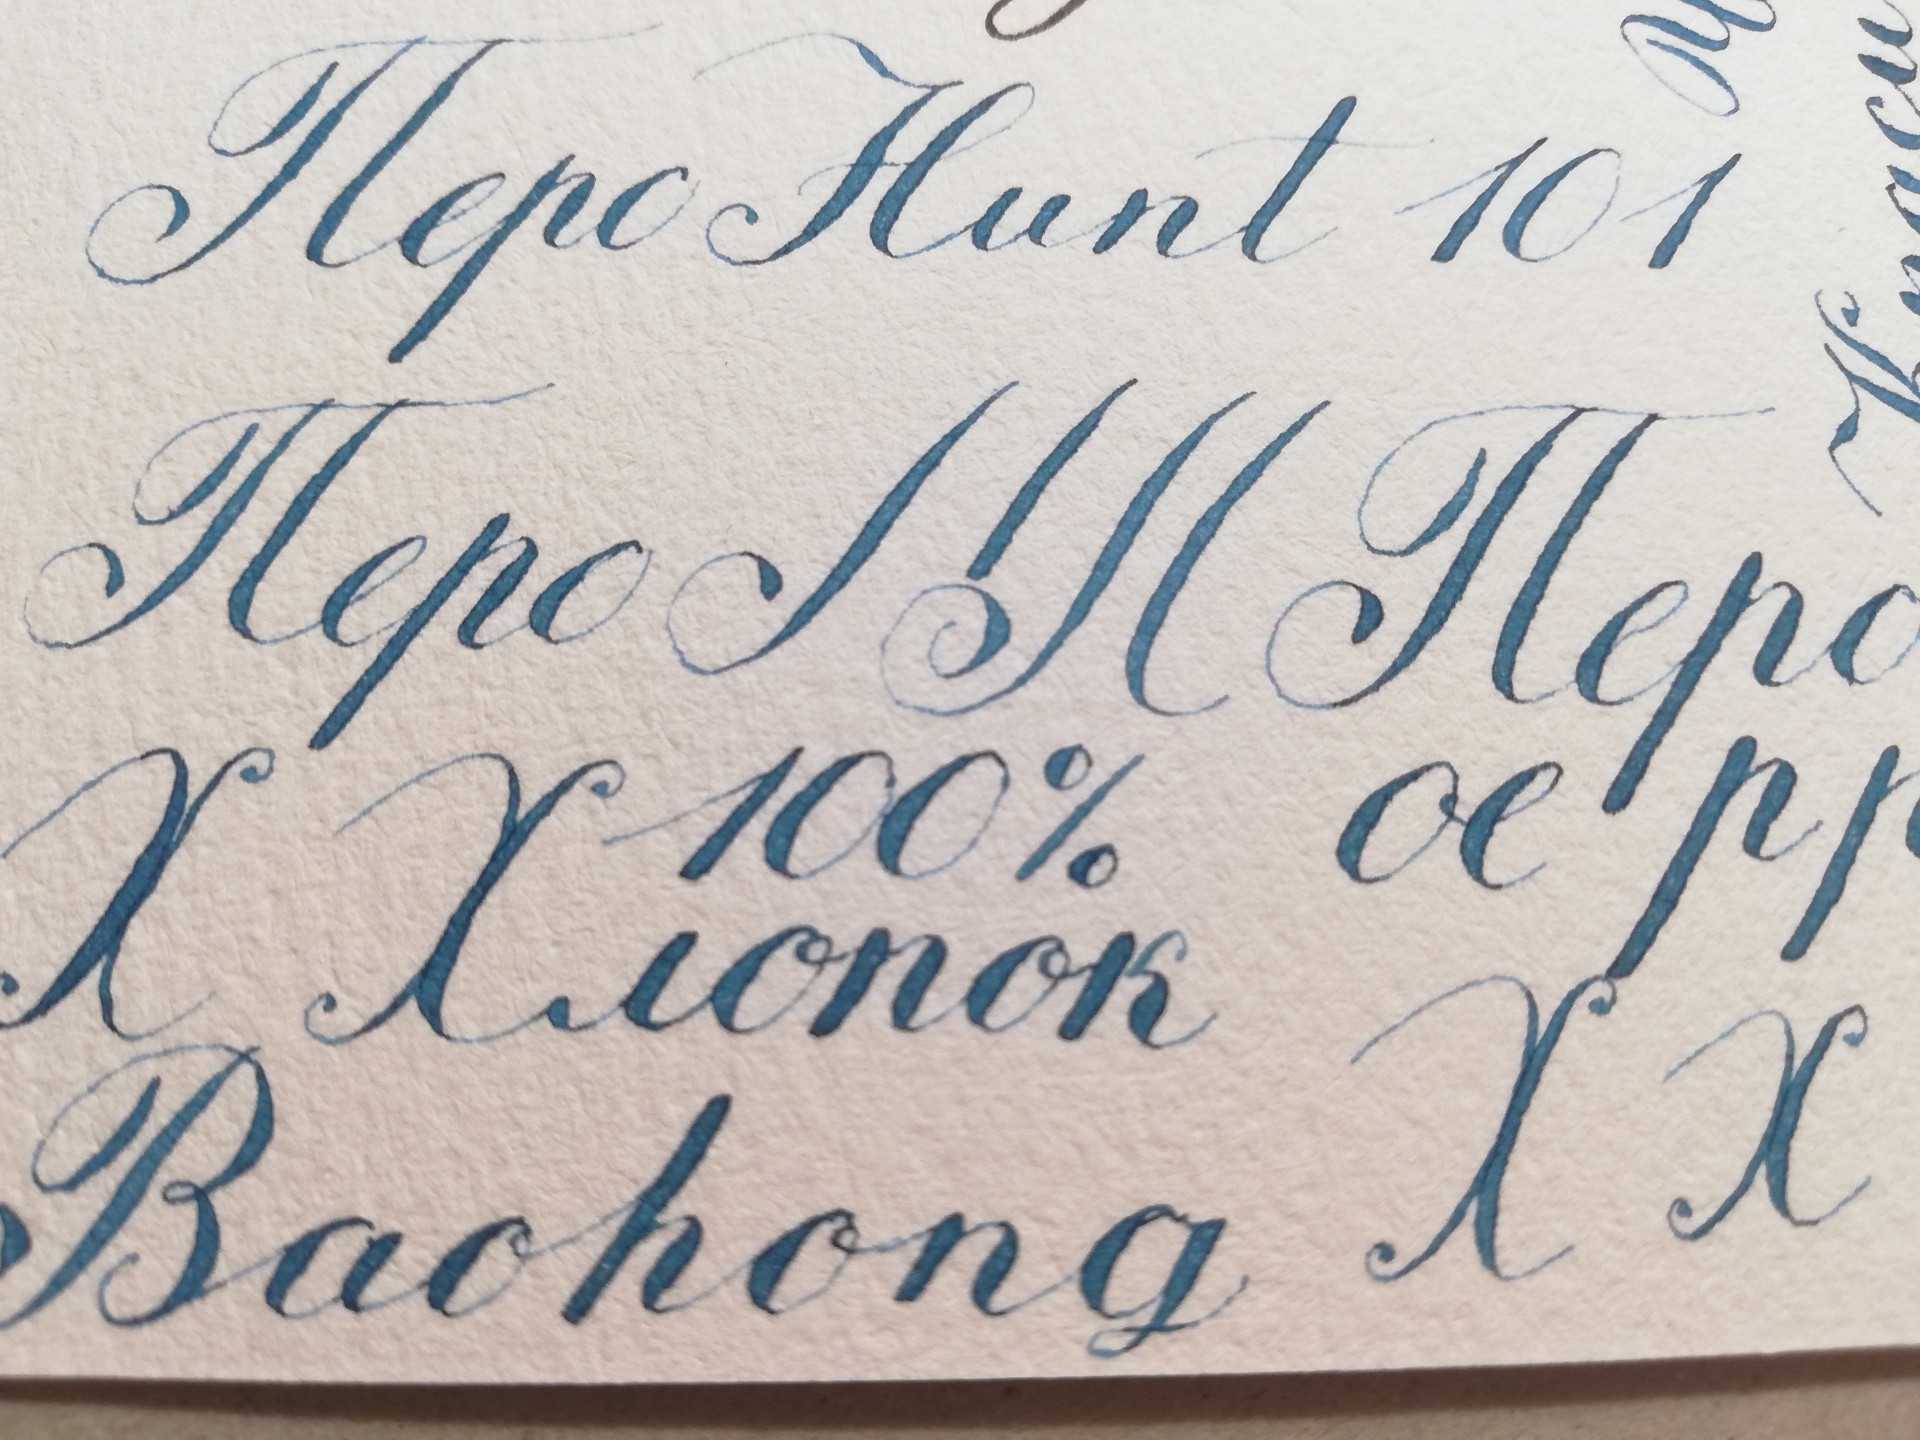 Перо Hunt 101
Перо П Перо
Х Хлопок 100% ое рр
Baohong Х Х